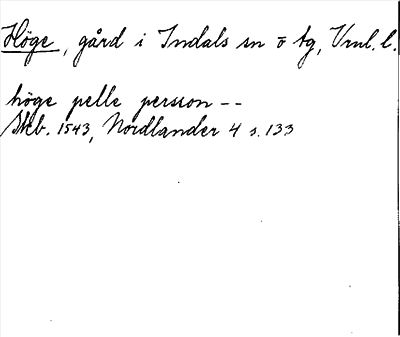 Höge, gård i Indals sn o tg, Vrnl. l.
höge pelle persson --
Skb. 1543, Nordlander 4 s. 133